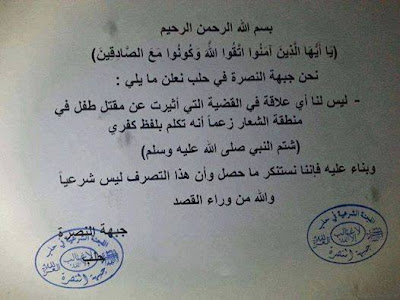 بسم الله الرحمن الرحيم
(يا أَيُّهَا الَّذِينَ آمَنُوا اتَّقُوا اللَّهَ وَكُونُوا مَعَ الصَّادِقِينَ)
نحن جبهة النصرة في حلب نعلن ما يلي :
- ليس لنا أي علاقة في القضية التي أثيرت عن مقتل طفل في
منطقة الشعار زعماً أنه تكلم بلفظ كفري
(شتم النبي صلى الله عليه وسلم)
وبناء عليه فإننا نستنكر ما حصل وأن هذا التصرف ليس شرعياً
والله من وراء القصد
جبهة النصرة
حلب
الهيئة الشرعية في حلب
جبهة النصرة
الهيئة الشرعية في حلب
جبهة النصرة